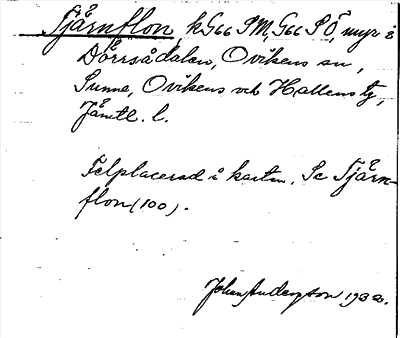 Tjärnflon, kG66 SM, G66 SÖ, myr i
Dörrsådalen, Ovikens sn,
Sunne, Ovikens och Hallens tg,
Jämtl. l.
Felplacerad å kartan. Se Tjärn-
flon (100).
Johan Anderzson 1932.